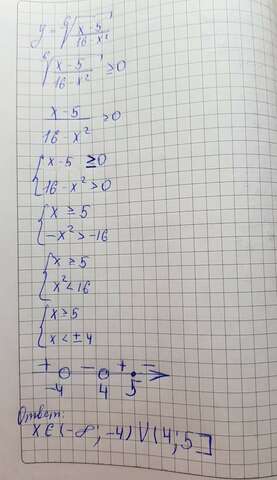 y = ⁶√(x-5)/(16-x²)
⁶√(x-5)/(16-x²) ≥0
(x-5)/(16-x²) >0
{ x-5 ≥0
16-x²>0
{ x ≥ 5
-x²>-16
{ x ≥ 5
x²<16
{ x ≥ 5
x < ± 4
+ - + -
-4 4 5
Ответ:
x∈(-∞; -4) V (4; 5]